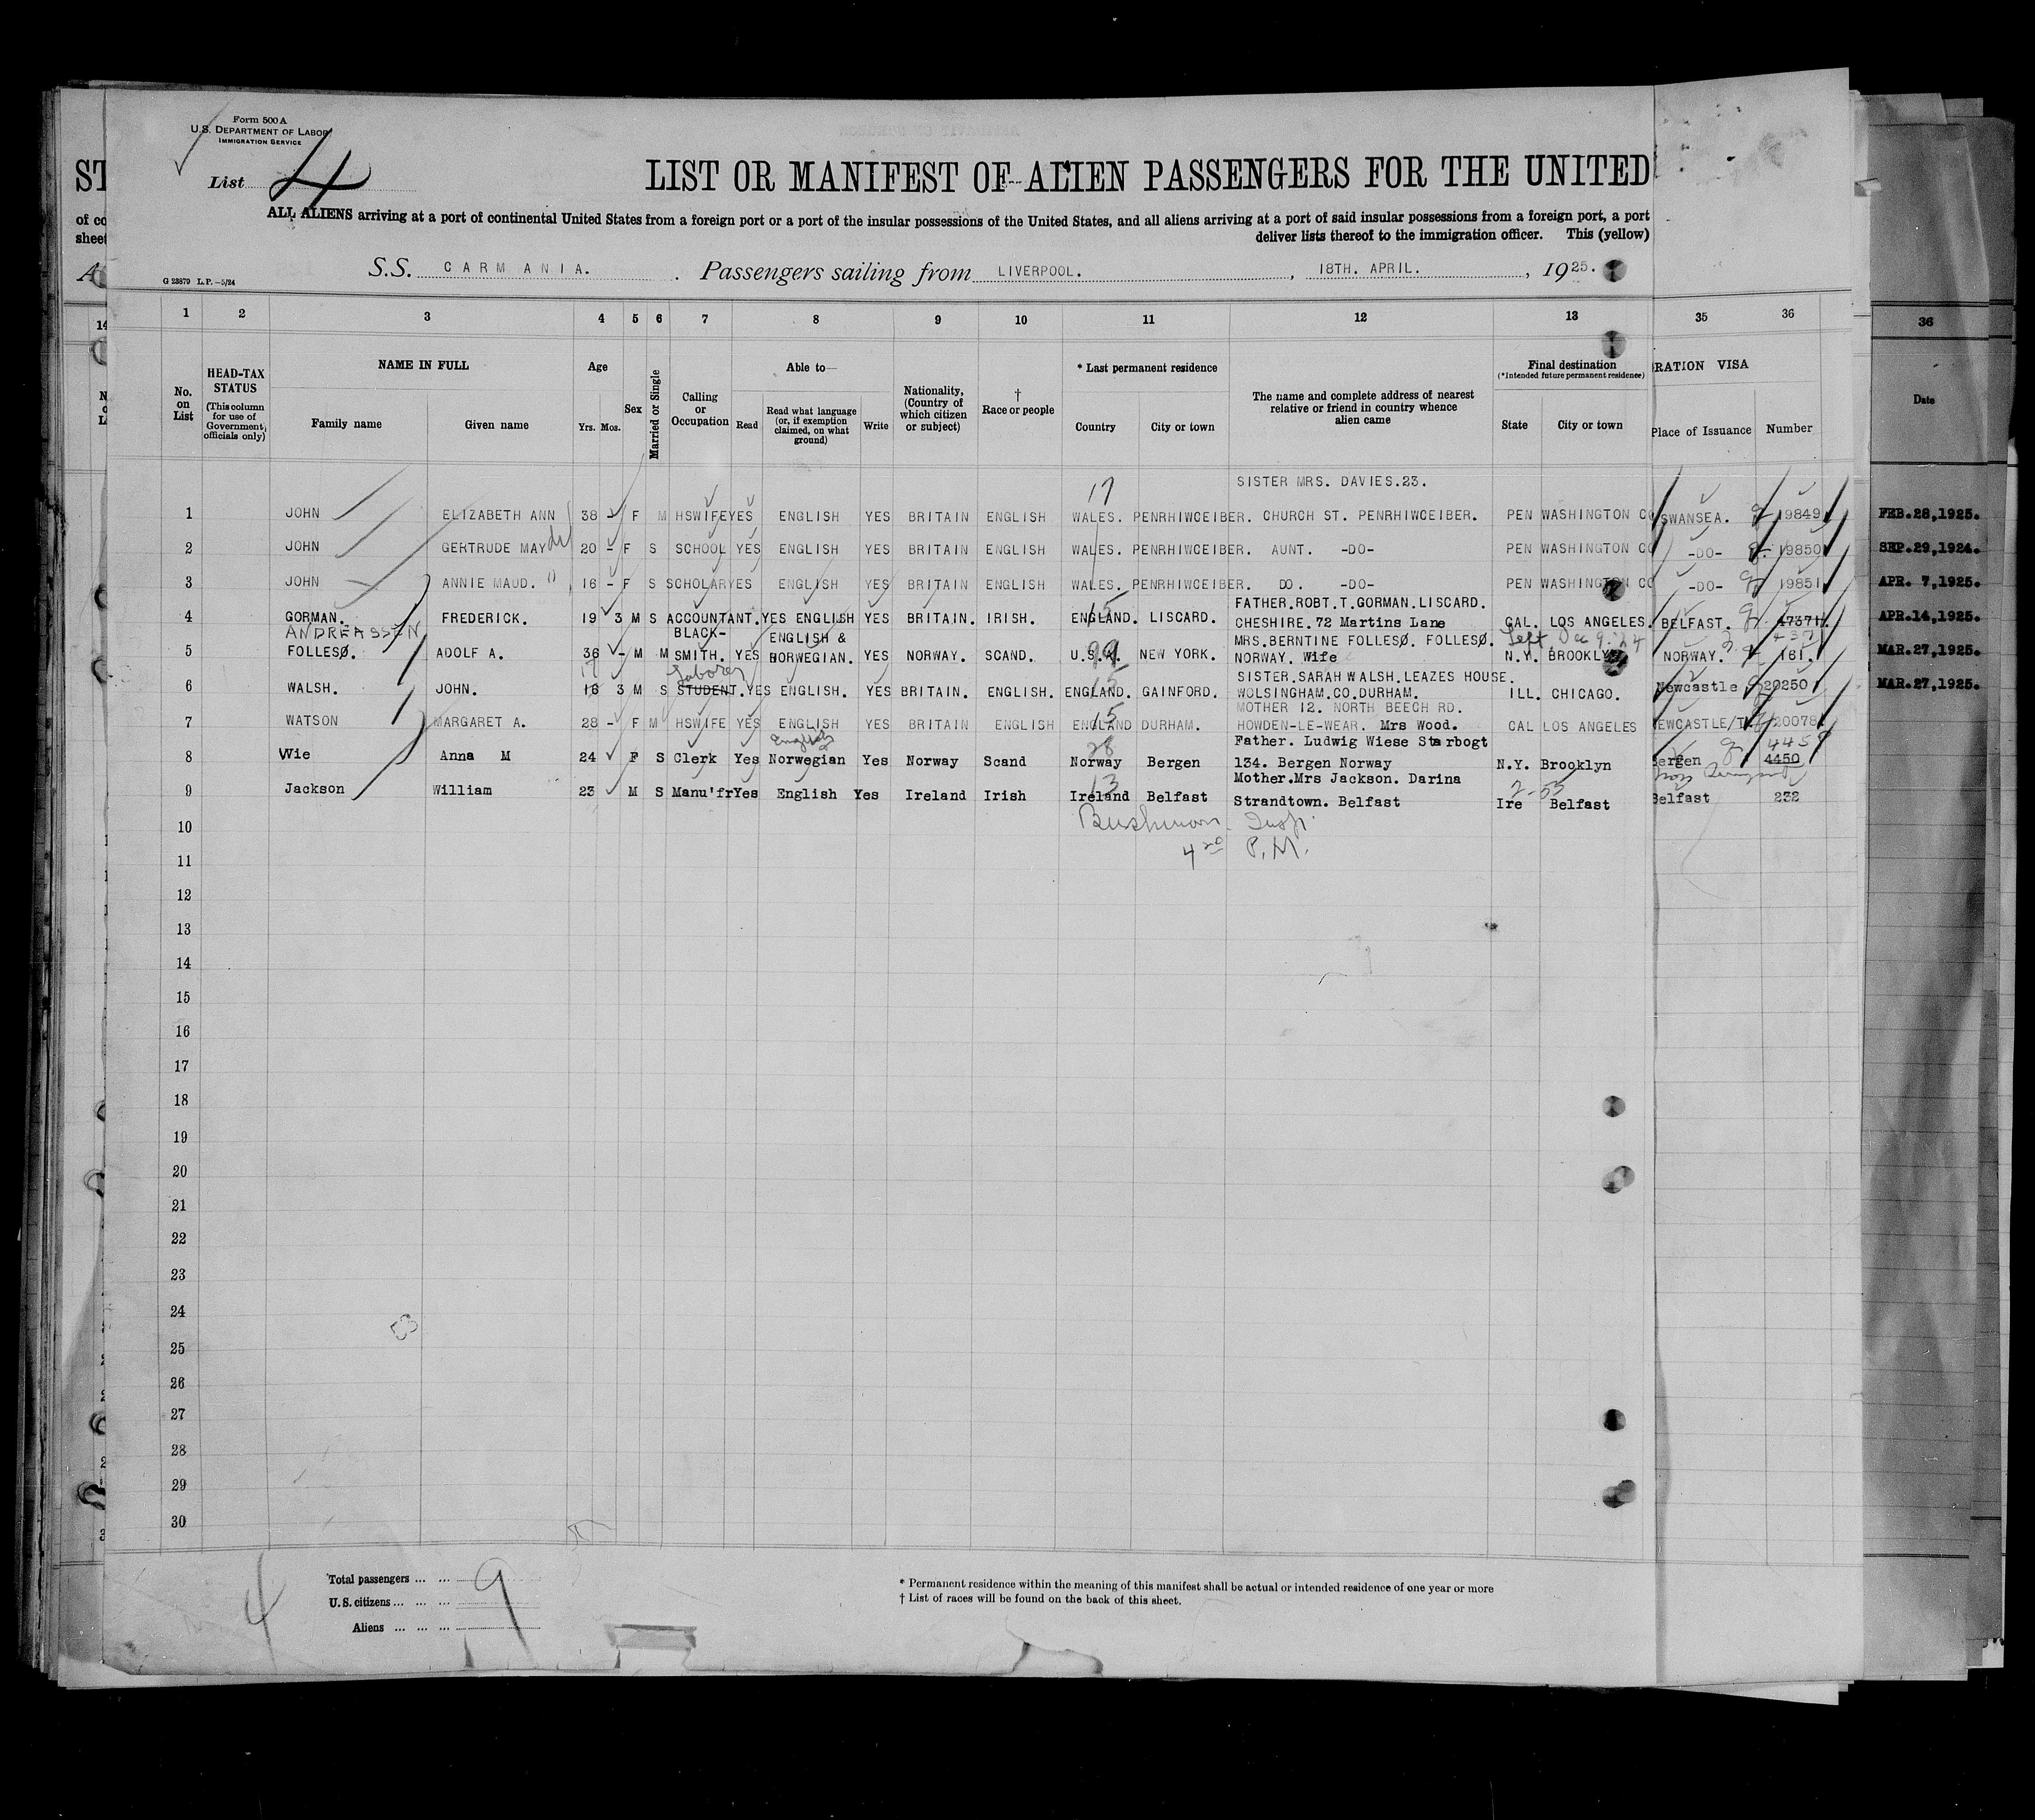 Form 500 A
U.S. DEPARTMENT OF LABOR
IMMIGRATION SERVICE
List 4
LIST OR MANIFEST OF ALIEN PASSENGERS FOR THE UNITED
ALL ALIENS arriving at a port of continental United States from a foreign port or a port of the insular possessions of the United States, and all aliens arriving at a port of said insular possessions from a foreign port, a port
deliver lists thereof to the immigration officer. This (yellow)
S.S. CARMANIA. Passengers sailing from LIVERPOOL. , 18TH. APRIL. , 1925.
G 23879 L.P.—5/24
1 2 3 4 5 6 7 8 9 10 11 12 13 35 36 36
No. on List
HEAD-TAX STATUS (This column for use of Government officials only)
NAME IN FULL
Family name Given name
Age
Yrs. Mos.
Sex
Married or Single
Calling or Occupation
Able to—
Read Read what language (or, if exemption claimed, on what ground) Write
Nationality, (Country of which citizen or subject)
† Race or people
* Last permanent residence
Country City or town
The name and complete address of nearest relative or friend in country whence alien came
Final destination
(*Intended future permanent residence)
State City or town
RATION VISA
Place of Issuance Number
Date
17 SISTER MRS. DAVIES.23.
1 JOHN ELIZABETH ANN 38 - F M HSWIFE YES ENGLISH YES BRITAIN ENGLISH WALES. PENRHIWCEIBER. CHURCH ST. PENRHIWCEIBER. PEN WASHINGTON CO SWANSEA. 19849 FEB.28,1925.
2 JOHN GERTRUDE MAY 20 - F S SCHOOL YES ENGLISH YES BRITAIN ENGLISH WALES. PENRHIWCEIBER. AUNT. -DO- PEN WASHINGTON CO -DO- 19850 SEP.29,1924.
3 JOHN ANNIE MAUD. 16 - F S SCHOLAR YES ENGLISH YES BRITAIN ENGLISH WALES. PENRHIWCEIBER. DO. -DO- PEN WASHINGTON CO -DO- 19851 APR. 7,1925.
15 FATHER.ROBT.T.GORMAN.LISCARD.
4 GORMAN. FREDERICK. 19 3 M S ACCOUNTANT. YES ENGLISH YES BRITAIN. IRISH. ENGLAND. LISCARD. CHESHIRE.72 Martins Lane CAL. LOS ANGELES. BELFAST. 47371 APR.14,1925.
ANDREASSEN BLACK- ENGLISH & MRS.BERNTINE FOLLESØ. FOLLESØ. Left Dec 9.24
5 FOLLESØ. ADOLF A. 36 - M M SMITH. YES NORWEGIAN. YES NORWAY. SCAND. U.S.A. 99 NEW YORK. NORWAY. Wife N.Y. BROOKLYN NORWAY. 161. MAR.27,1925.
17 Laborer 15 SISTER.SARAH WALSH.LEAZES HOUSE.
6 WALSH. JOHN. 16 3 M S STUDENT. YES ENGLISH. YES BRITAIN. ENGLISH. ENGLAND. GAINFORD. WOLSINGHAM.CO.DURHAM. ILL. CHICAGO. Newcastle 20250 MAR.27,1925.
15 MOTHER 12. NORTH BEECH RD.
7 WATSON MARGARET A. 28 - F M HSWIFE YES ENGLISH YES BRITAIN ENGLISH ENGLAND DURHAM. HOWDEN-LE-WEAR. Mrs Wood. CAL LOS ANGELES EWCASTLE/T. 20078
English 28 Father. Ludwig Wiese Starbogt 4458
8 Wie Anna M 24 F S Clerk Yes Norwegian Yes Norway Scand Norway Bergen 134. Bergen Norway N.Y. Brooklyn ergen 4450
13 Mother.Mrs Jackson. Darina 2-53
9 Jackson William 23 M S Manu'fr Yes English Yes Ireland Irish Ireland Belfast Strandtown. Belfast Ire Belfast Belfast 232
10 Insp.
11 P.M.
12
13
14
15
16
17
18
19
20
21
22
23
24
25
26
27
28
29
30
4
Total passengers ... ... 9
U.S. citizens ... ... ...
Aliens ... ... ...
* Permanent residence within the meaning of this manifest shall be actual or intended residence of one year or more
† List of races will be found on the back of this sheet.